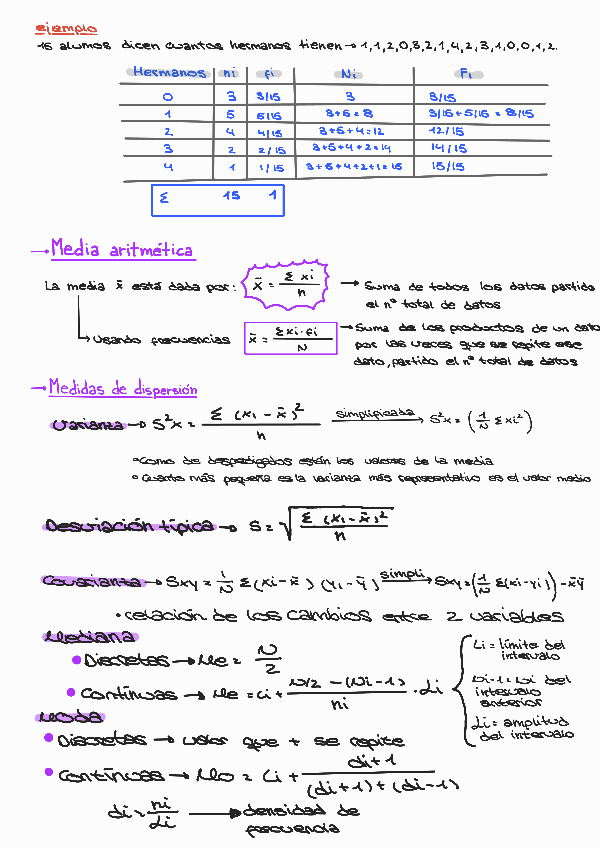 ejemplo
15 alumos dicen cuantos hermanos tienen → 1,1,2,0,3,2,1,4,2,3,1,0,0,1,2.
Hermanos ni fi Ni Fi
0 3 3/15 3 3/15
1 5 5/15 3+5=8 3/15+5/15=8/15
2 4 4/15 3+5+4=12 12/15
3 2 2/15 3+5+4+2=14 14/15
4 1 1/15 3+5+4+2+1=15 15/15
Σ 15 1
→ Media aritmética
La media x̄ está dada por: x̄ = Σ xi / n → Suma de todos los datos partido
el nº total de datos
↳ Usando frecuencias x̄ = Σxi·fi / N → Suma de los productos de un dato
por las veces que se repite ese
dato, partido el nº total de datos
→ Medidas de dispersión
Varianza → S²x = Σ (xi - x̄)² / n simplificada → S²x = (1/N Σ xi²)
• Como de despedigados están los valores de la media
• Cuanto más pequeña es la varianza más representativo es el valor medio
Desviación típica → S = √(Σ (xi - x̄)² / n)
Covarianza → Sxy = 1/N Σ (xi - x̄) (yi - ȳ) simpli → Sxy = (1/N Σ(xi-yi)) - x̄ȳ
• relación de los cambios entre 2 variables
Mediana
• Discretas → Me = N/2
• Contínuas → Me = Li + N/2 - (Ni-1) / ni · Li
Li = límite del
intervalo
Ni-1 = Ni del
intervalo
anterior
Li = amplitud
del intervalo
Moda
• Discretas → valor que + se repite
• Contínuas → Mo = Li + di+1 / (di+1)+(di-1)
di = ni / Li → densidad de
frecuencia